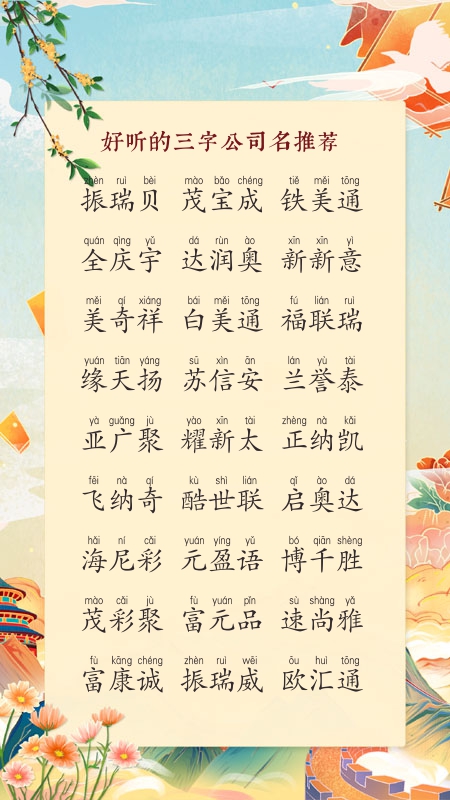 好听的三字公司名推荐
zhèn ruì bèi mào bǎo chéng tiě měi tōng
振瑞贝 茂宝成 铁美通
quán qìng yǔ dá rùn ào xīn xīn yì
全庆宇 达润奥 新新意
měi qí xiáng bái měi tōng fú lián ruì
美奇祥 白美通 福联瑞
yuán tiān yáng sū xìn ān lán yù tài
缘天扬 苏信安 兰誉泰
yà guǎng jù yào xīn tài zhèng nà kǎi
亚广聚 耀新太 正纳凯
fēi nà qí kù shì lián qǐ ào dá
飞纳奇 酷世联 启奥达
hǎi ní cǎi yuán yíng yǔ bó qiān shèng
海尼彩 元盈语 博千胜
mào cǎi jù fù yuán pǐn sù shàng yǎ
茂彩聚 富元品 速尚雅
fù kāng chéng zhèn ruì wēi ōu huì tōng
富康诚 振瑞威 欧汇通